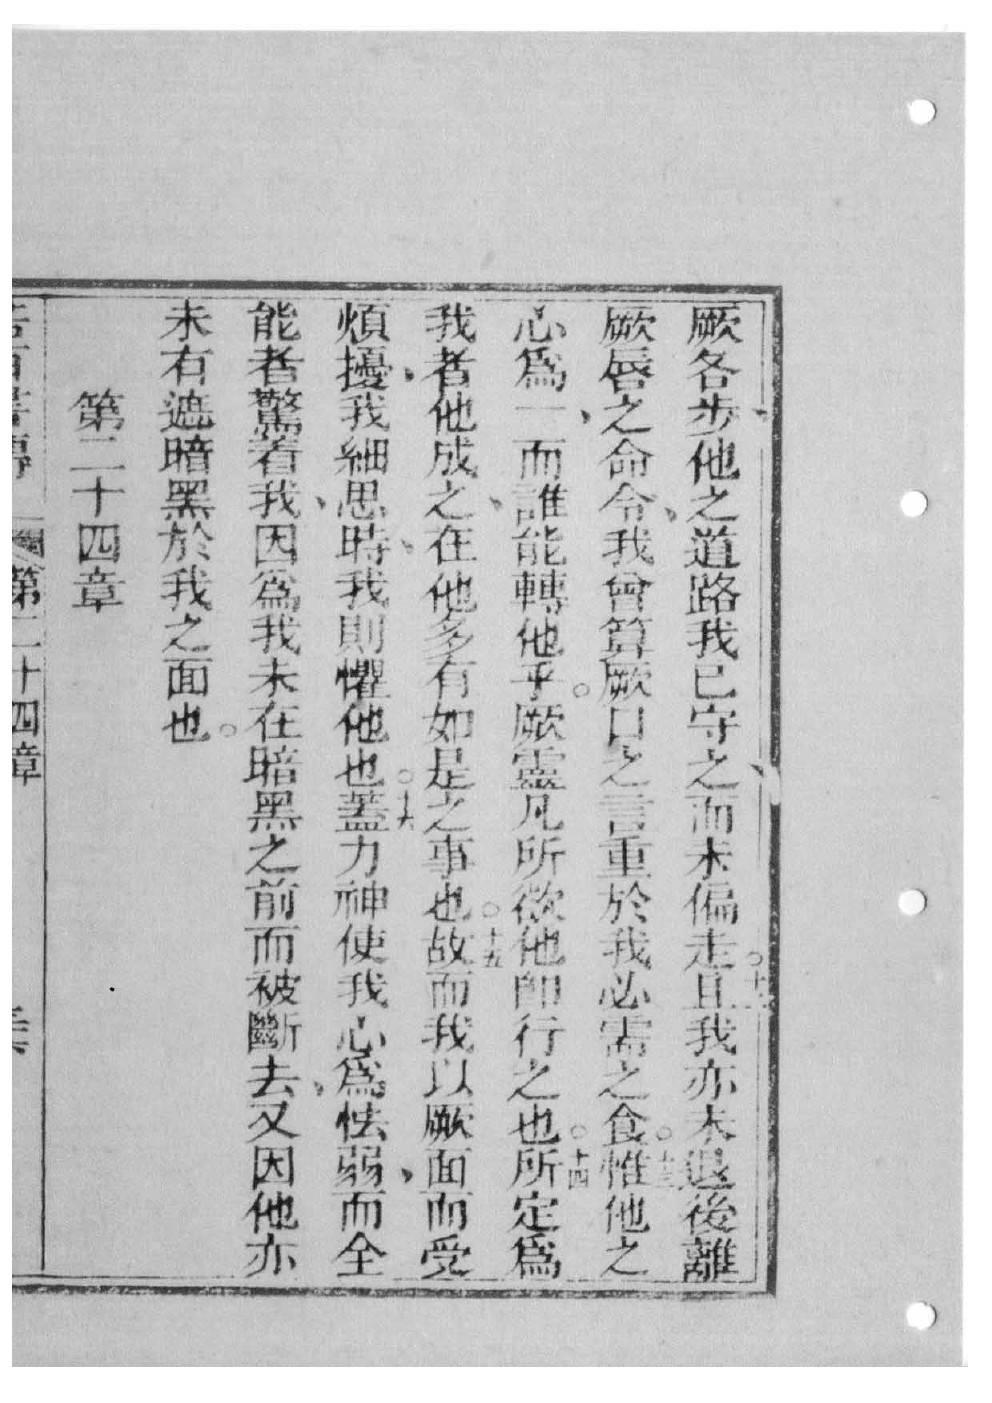 厥各步、他之道路我已守之、而未偏走。十二且我亦未退後離
厥唇之命令、我曾算厥口之言重於我必需之食。十三惟他之
心爲一、而誰能轉他乎。厥靈凡所欲他即行之也。十四所定爲
我者他成之、在他多有如是之事也。十五故而我以厥面而受
煩擾、我細思時、我則懼他也。十六蓋力神使我心爲怯弱、而全
能者驚着我、因爲我未在暗黑之前而被斷去、又因他亦
未有遮暗黑於我之面也。
第二十四章
第二十四章